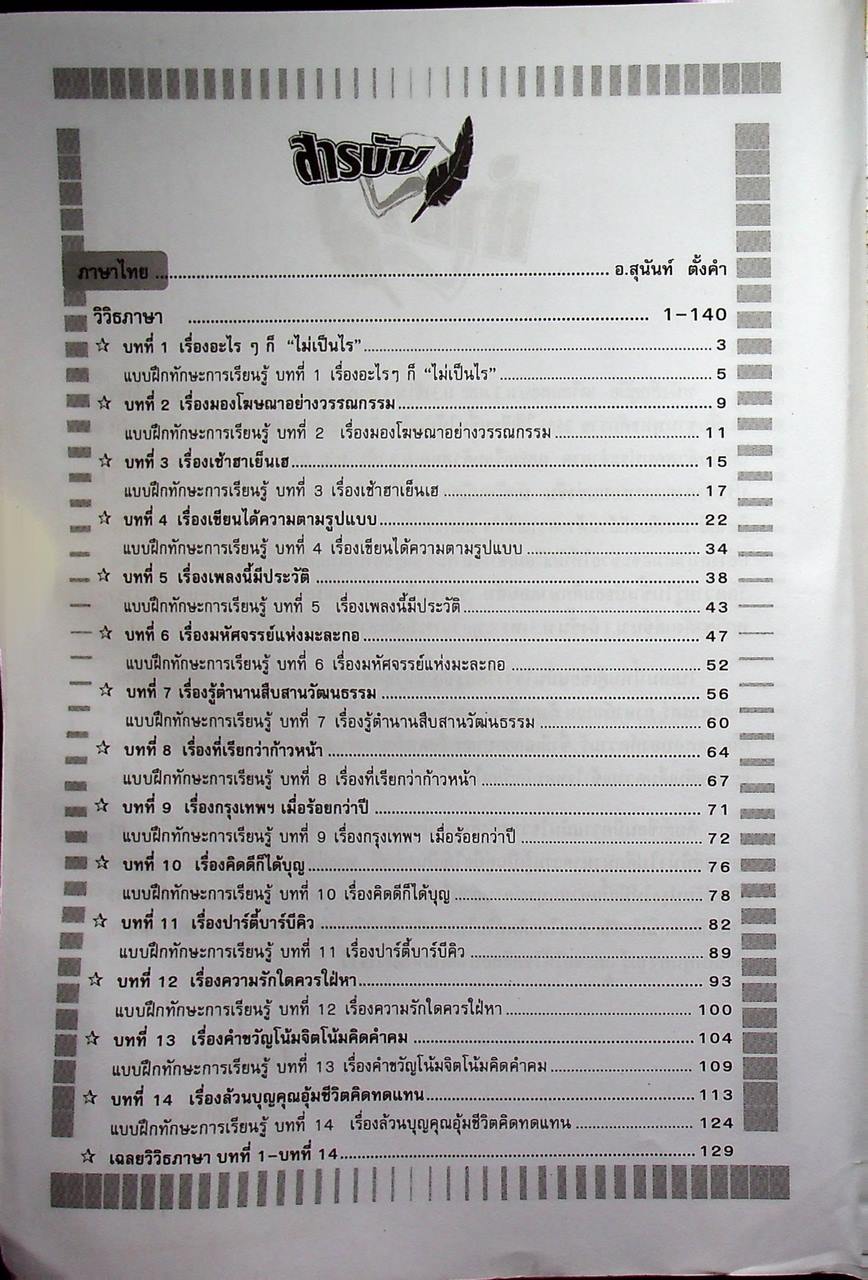 สารบัญ
ภาษาไทย ........................................ อ.สุนันท์ ตั้งคำ
วิวิธภาษา ........................................ 1-140
☆ บทที่ 1 เรื่องอะไร ๆ ก็ “ไม่เป็นไร” ........................................ 3
แบบฝึกทักษะการเรียนรู้ บทที่ 1 เรื่องอะไรๆ ก็ “ไม่เป็นไร” ........................................ 5
☆ บทที่ 2 เรื่องมองโฆษณาอย่างวรรณกรรม ........................................ 9
แบบฝึกทักษะการเรียนรู้ บทที่ 2 เรื่องมองโฆษณาอย่างวรรณกรรม ........................................ 11
☆ บทที่ 3 เรื่องเช้าฮาเย็นเฮ ........................................ 15
แบบฝึกทักษะการเรียนรู้ บทที่ 3 เรื่องเช้าฮาเย็นเฮ ........................................ 17
☆ บทที่ 4 เรื่องเขียนได้ความตามรูปแบบ ........................................ 22
แบบฝึกทักษะการเรียนรู้ บทที่ 4 เรื่องเขียนได้ความตามรูปแบบ ........................................ 34
☆ บทที่ 5 เรื่องเพลงนี้มีประวัติ ........................................ 38
แบบฝึกทักษะการเรียนรู้ บทที่ 5 เรื่องเพลงนี้มีประวัติ ........................................ 43
☆ บทที่ 6 เรื่องมหัศจรรย์แห่งมะละกอ ........................................ 47
แบบฝึกทักษะการเรียนรู้ บทที่ 6 เรื่องมหัศจรรย์แห่งมะละกอ ........................................ 52
☆ บทที่ 7 เรื่องรู้ตำนานสืบสานวัฒนธรรม ........................................ 56
แบบฝึกทักษะการเรียนรู้ บทที่ 7 เรื่องรู้ตำนานสืบสานวัฒนธรรม ........................................ 60
☆ บทที่ 8 เรื่องที่เรียกว่าก้าวหน้า ........................................ 64
แบบฝึกทักษะการเรียนรู้ บทที่ 8 เรื่องที่เรียกว่าก้าวหน้า ........................................ 67
☆ บทที่ 9 เรื่องกรุงเทพฯ เมื่อร้อยกว่าปี ........................................ 71
แบบฝึกทักษะการเรียนรู้ บทที่ 9 เรื่องกรุงเทพฯ เมื่อร้อยกว่าปี ........................................ 72
☆ บทที่ 10 เรื่องคิดดีก็ได้บุญ ........................................ 76
แบบฝึกทักษะการเรียนรู้ บทที่ 10 เรื่องคิดดีก็ได้บุญ ........................................ 78
☆ บทที่ 11 เรื่องปาร์ตี้บาร์บีคิว ........................................ 82
แบบฝึกทักษะการเรียนรู้ บทที่ 11 เรื่องปาร์ตี้บาร์บีคิว ........................................ 89
☆ บทที่ 12 เรื่องความรักใดควรใฝ่หา ........................................ 93
แบบฝึกทักษะการเรียนรู้ บทที่ 12 เรื่องความรักใดควรใฝ่หา ........................................ 100
☆ บทที่ 13 เรื่องคำขวัญโน้มจิตโน้มคิดคำคม ........................................ 104
แบบฝึกทักษะการเรียนรู้ บทที่ 13 เรื่องคำขวัญโน้มจิตโน้มคิดคำคม ........................................ 109
☆ บทที่ 14 เรื่องล้วนบุญคุณอุ้มชีวิตคิดทดแทน ........................................ 113
แบบฝึกทักษะการเรียนรู้ บทที่ 14 เรื่องล้วนบุญคุณอุ้มชีวิตคิดทดแทน ........................................ 124
☆ เฉลยวิวิธภาษา บทที่ 1-บทที่ 14 ........................................ 129